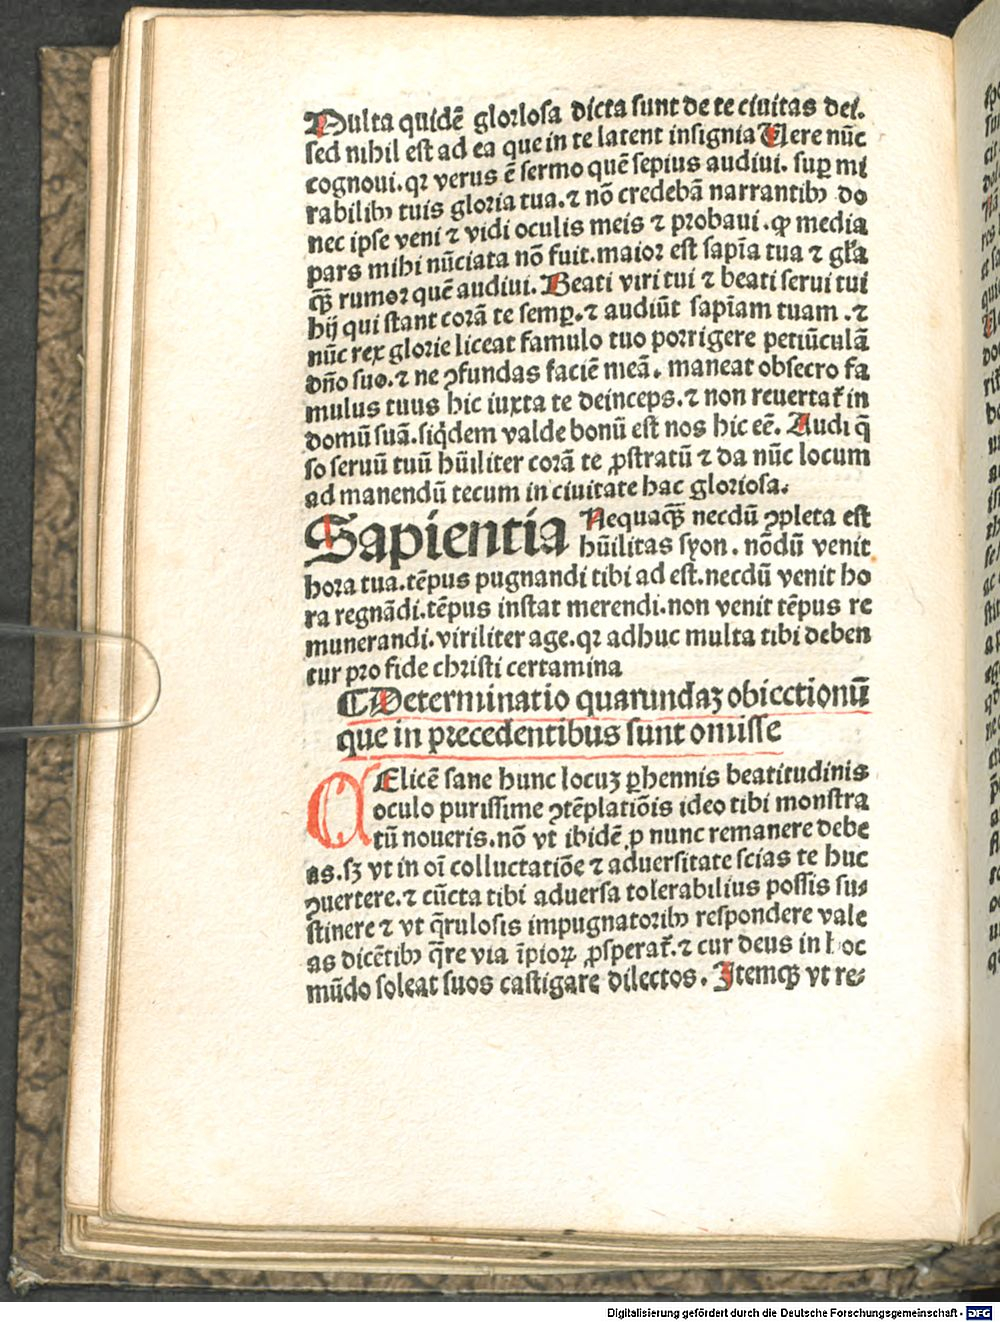 Multa quidē glorıosa dicta sunt de te ciuitas dei.
sed nihil est ad ea que in te latent insignia Uere nūc
cognoui. qꝛ verus ē sermo quē sepius audiui. suꝑ mi
rabilibꝫ tuis gloria tua. ⁊ nō credebā narrantibꝫ do
nec ipse veni ⁊ vidi oculis meis ⁊ probaui . ꝙ media
pars mihi nūciata nō fuit. maior est sapīa tua ⁊ gła
qꝫ̄ rumor quē audiui. Beati viri tui ⁊ beati serui tui
hij qui stant corā te semꝑ. ⁊ audiūt sapīam tuam . ⁊
nūc rex glorie liceat famulo tuo porrigere petiūculā
dño suo. ⁊ ne ꝯfundas faciē meā. maneat obsecro fa
mulus tuus hic iuxta te deinceps. ⁊ non reuertat᷑ in
domū suā. siq̇dem valde bonū est nos hic eē. Audi q̄
so seruū tuū hūiliter corā te ꝓstratū ⁊ da nūc locum
ad manendū tecum in ciuitate hac gloriosa.
Sapientia Nequaqꝫ̄ necdū ꝯpleta est
hūilitas syon . nōdū venit
hora tua. tēpus pugnandi tibi ad est. necdū venit ho
ra regnādi. tēpus instat merendi. non venit tēpus re
munerandi. viriliter age. qꝛ adhuc multa tibi deben
tur pro fide christi certamina
¶ Determinatio quarundaꝫ obiectionū
que in precedentibus sunt omisse
Elicē sane hunc locuꝫ ꝑhennis beatitudinis
oculo purissime ꝯtēplatiōis ideo tibi monstra
tū noueris. nō vt ibidē ꝑ nunc remanere debe
as. sꝫ vt in oī colluctatiōe ⁊ aduersitate scias te huc
ꝯuertere. ⁊ cūcta tibi aduersa tolerabilius possis su⸗
stinere ⁊ vt q̄rulosis impugnatoribꝫ respondere vale
as dicētibꝫ q̄re via īpioꝝ ꝓsperat᷑. ⁊ cur deus in hoc
mūdo soleat suos castigare dilectos. Itemqꝫ vt re⸗
Digitalisierung gefördert durch die Deutsche Forschungsgemeinschaft - DFG